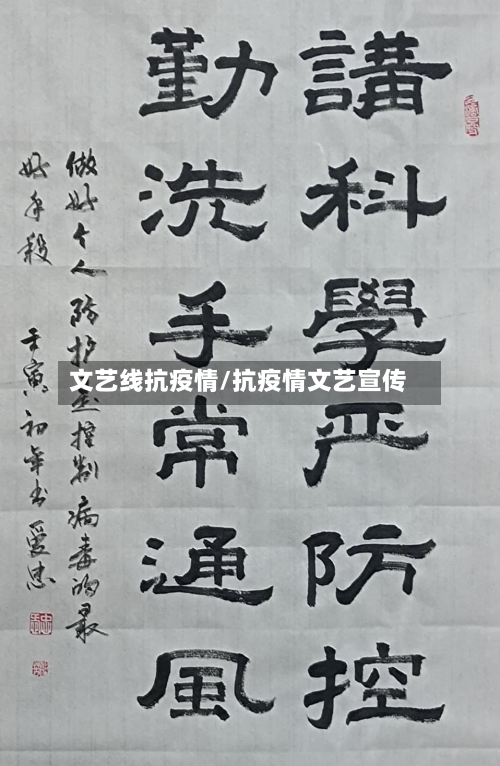 講科學严防控
勤洗手常通風
做好个人防护是控制病毒的最
好手段
壬寅初年书爱忠
文艺线抗疫情/抗疫情文艺宣传